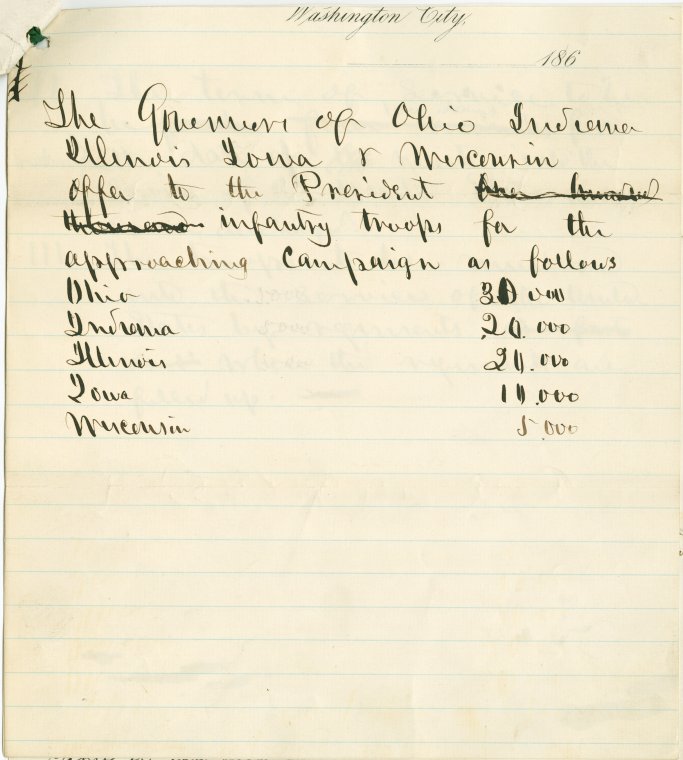 Washington City,
186
The Governors of Ohio Indiana
Illinois Iowa & Wisconsin
offer to the President One hundred
thousand infantry troops for the
approaching campaign as follows
Ohio 30.000
Indiana 20.000
Illinois 20.000
Iowa 10.000
Wisconsin 5.000